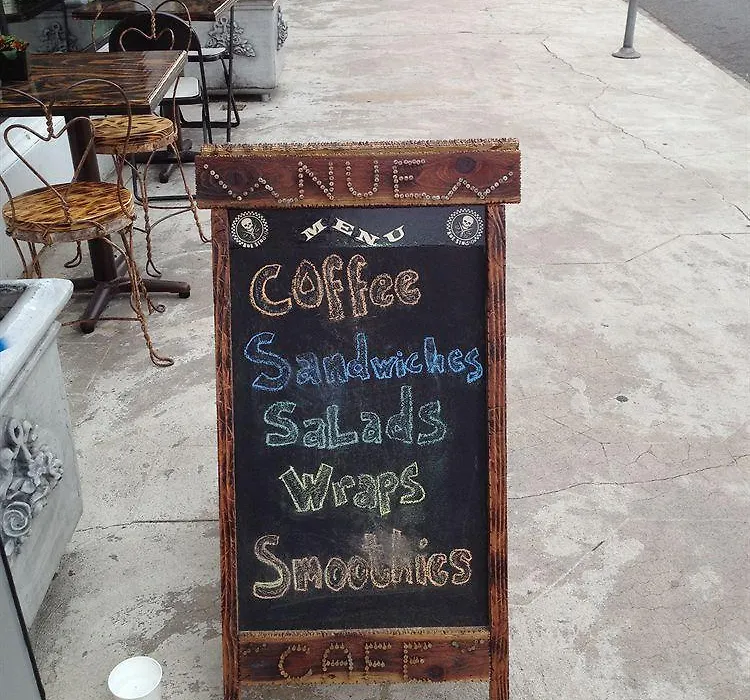 NUE
MENU
Coffee
Sandwiches
Salads
Wraps
Smoothies
CAFE